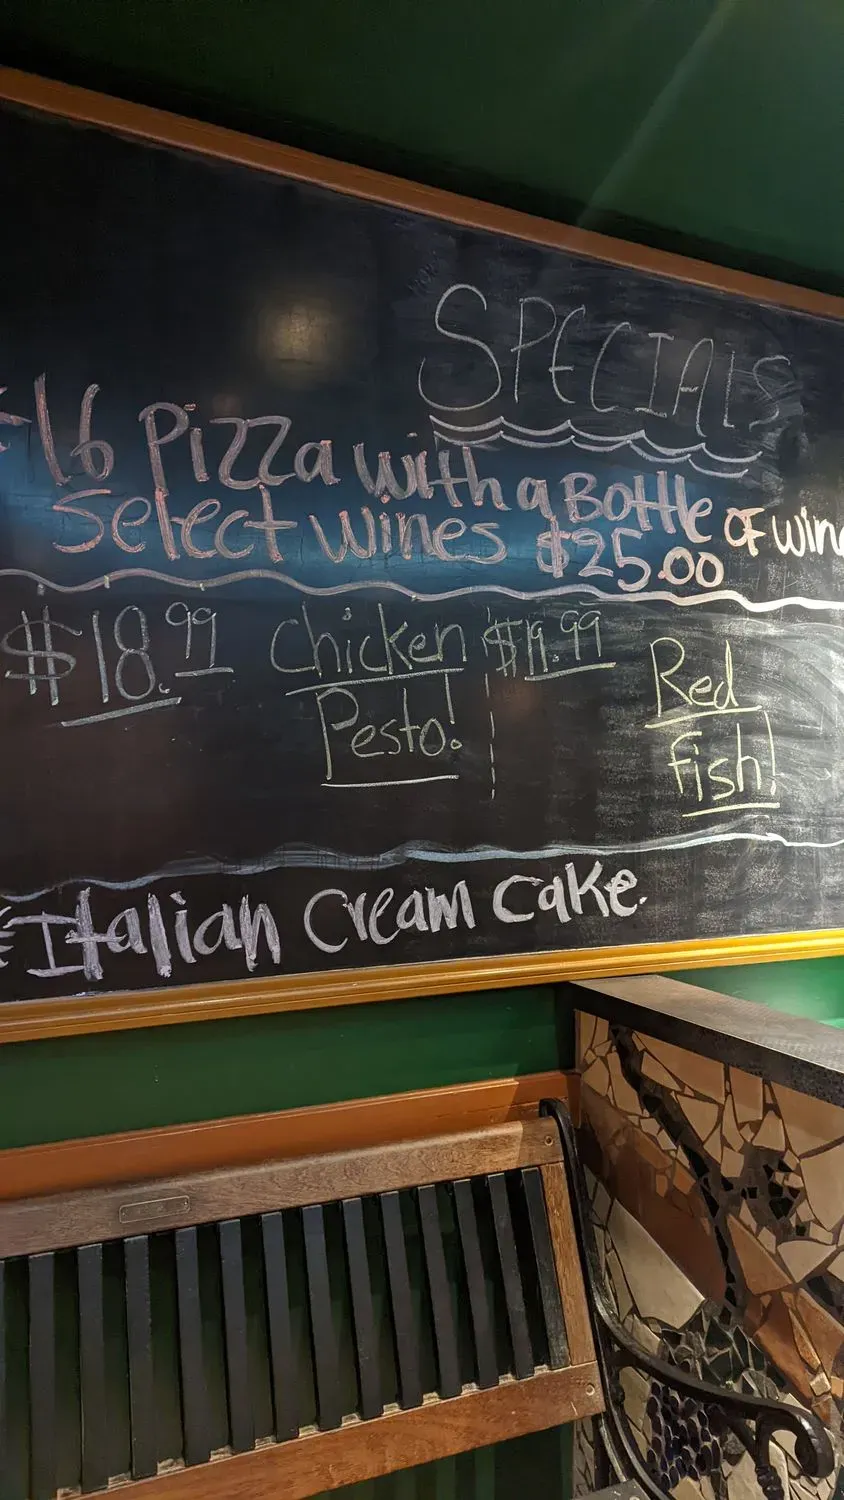 SPECIALS
16 Pizza with a Bottle of wine
Select Wines $25.00
$18.99 Chicken Pesto!
$19.99 Red Fish!
Italian Cream Cake.